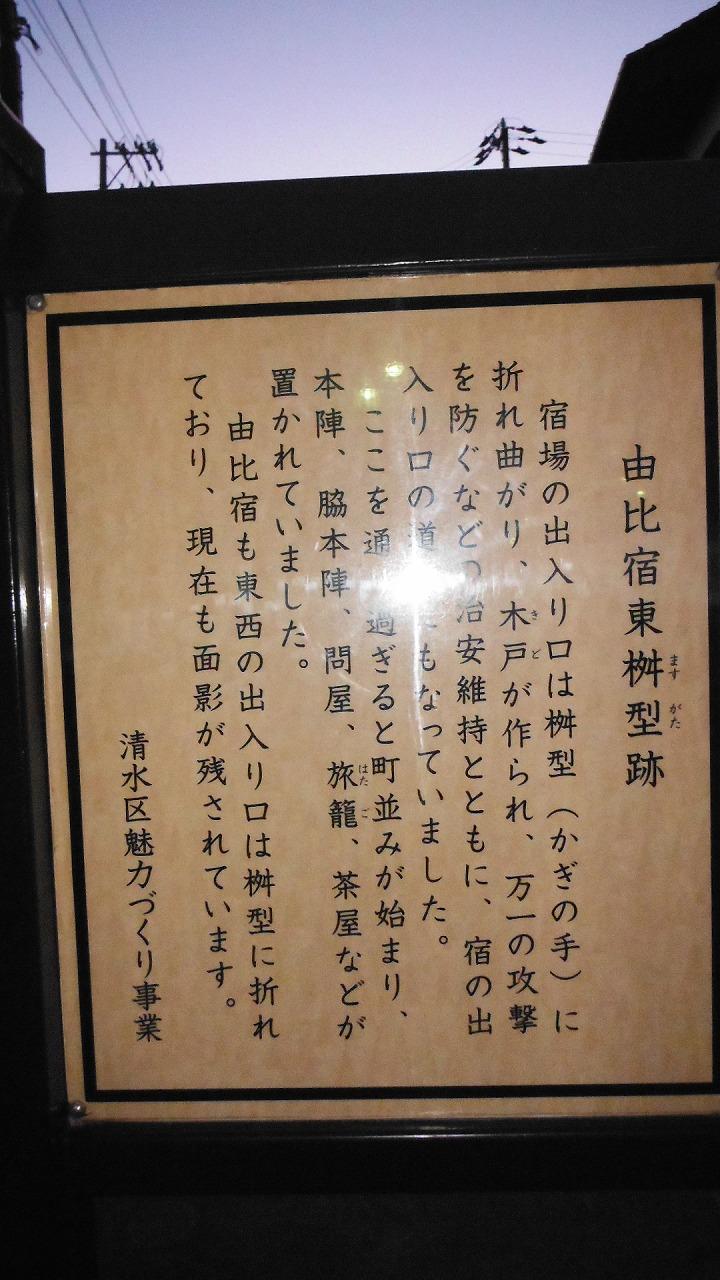 由比宿東桝型跡
ます がた
宿場の出入り口は桝型（かぎの手）に
折れ曲がり、木戸が作られ、万一の攻撃
きど
を防ぐなどの治安維持とともに、宿の出
入り口の道 にもなっていました。
ここを通 過ぎると町並みが始まり、
本陣、脇本陣、問屋、旅籠、茶屋などが
はたご
置かれていました。
由比宿も東西の出入り口は桝型に折れ
ており、現在も面影が残されています。
清水区魅力づくり事業